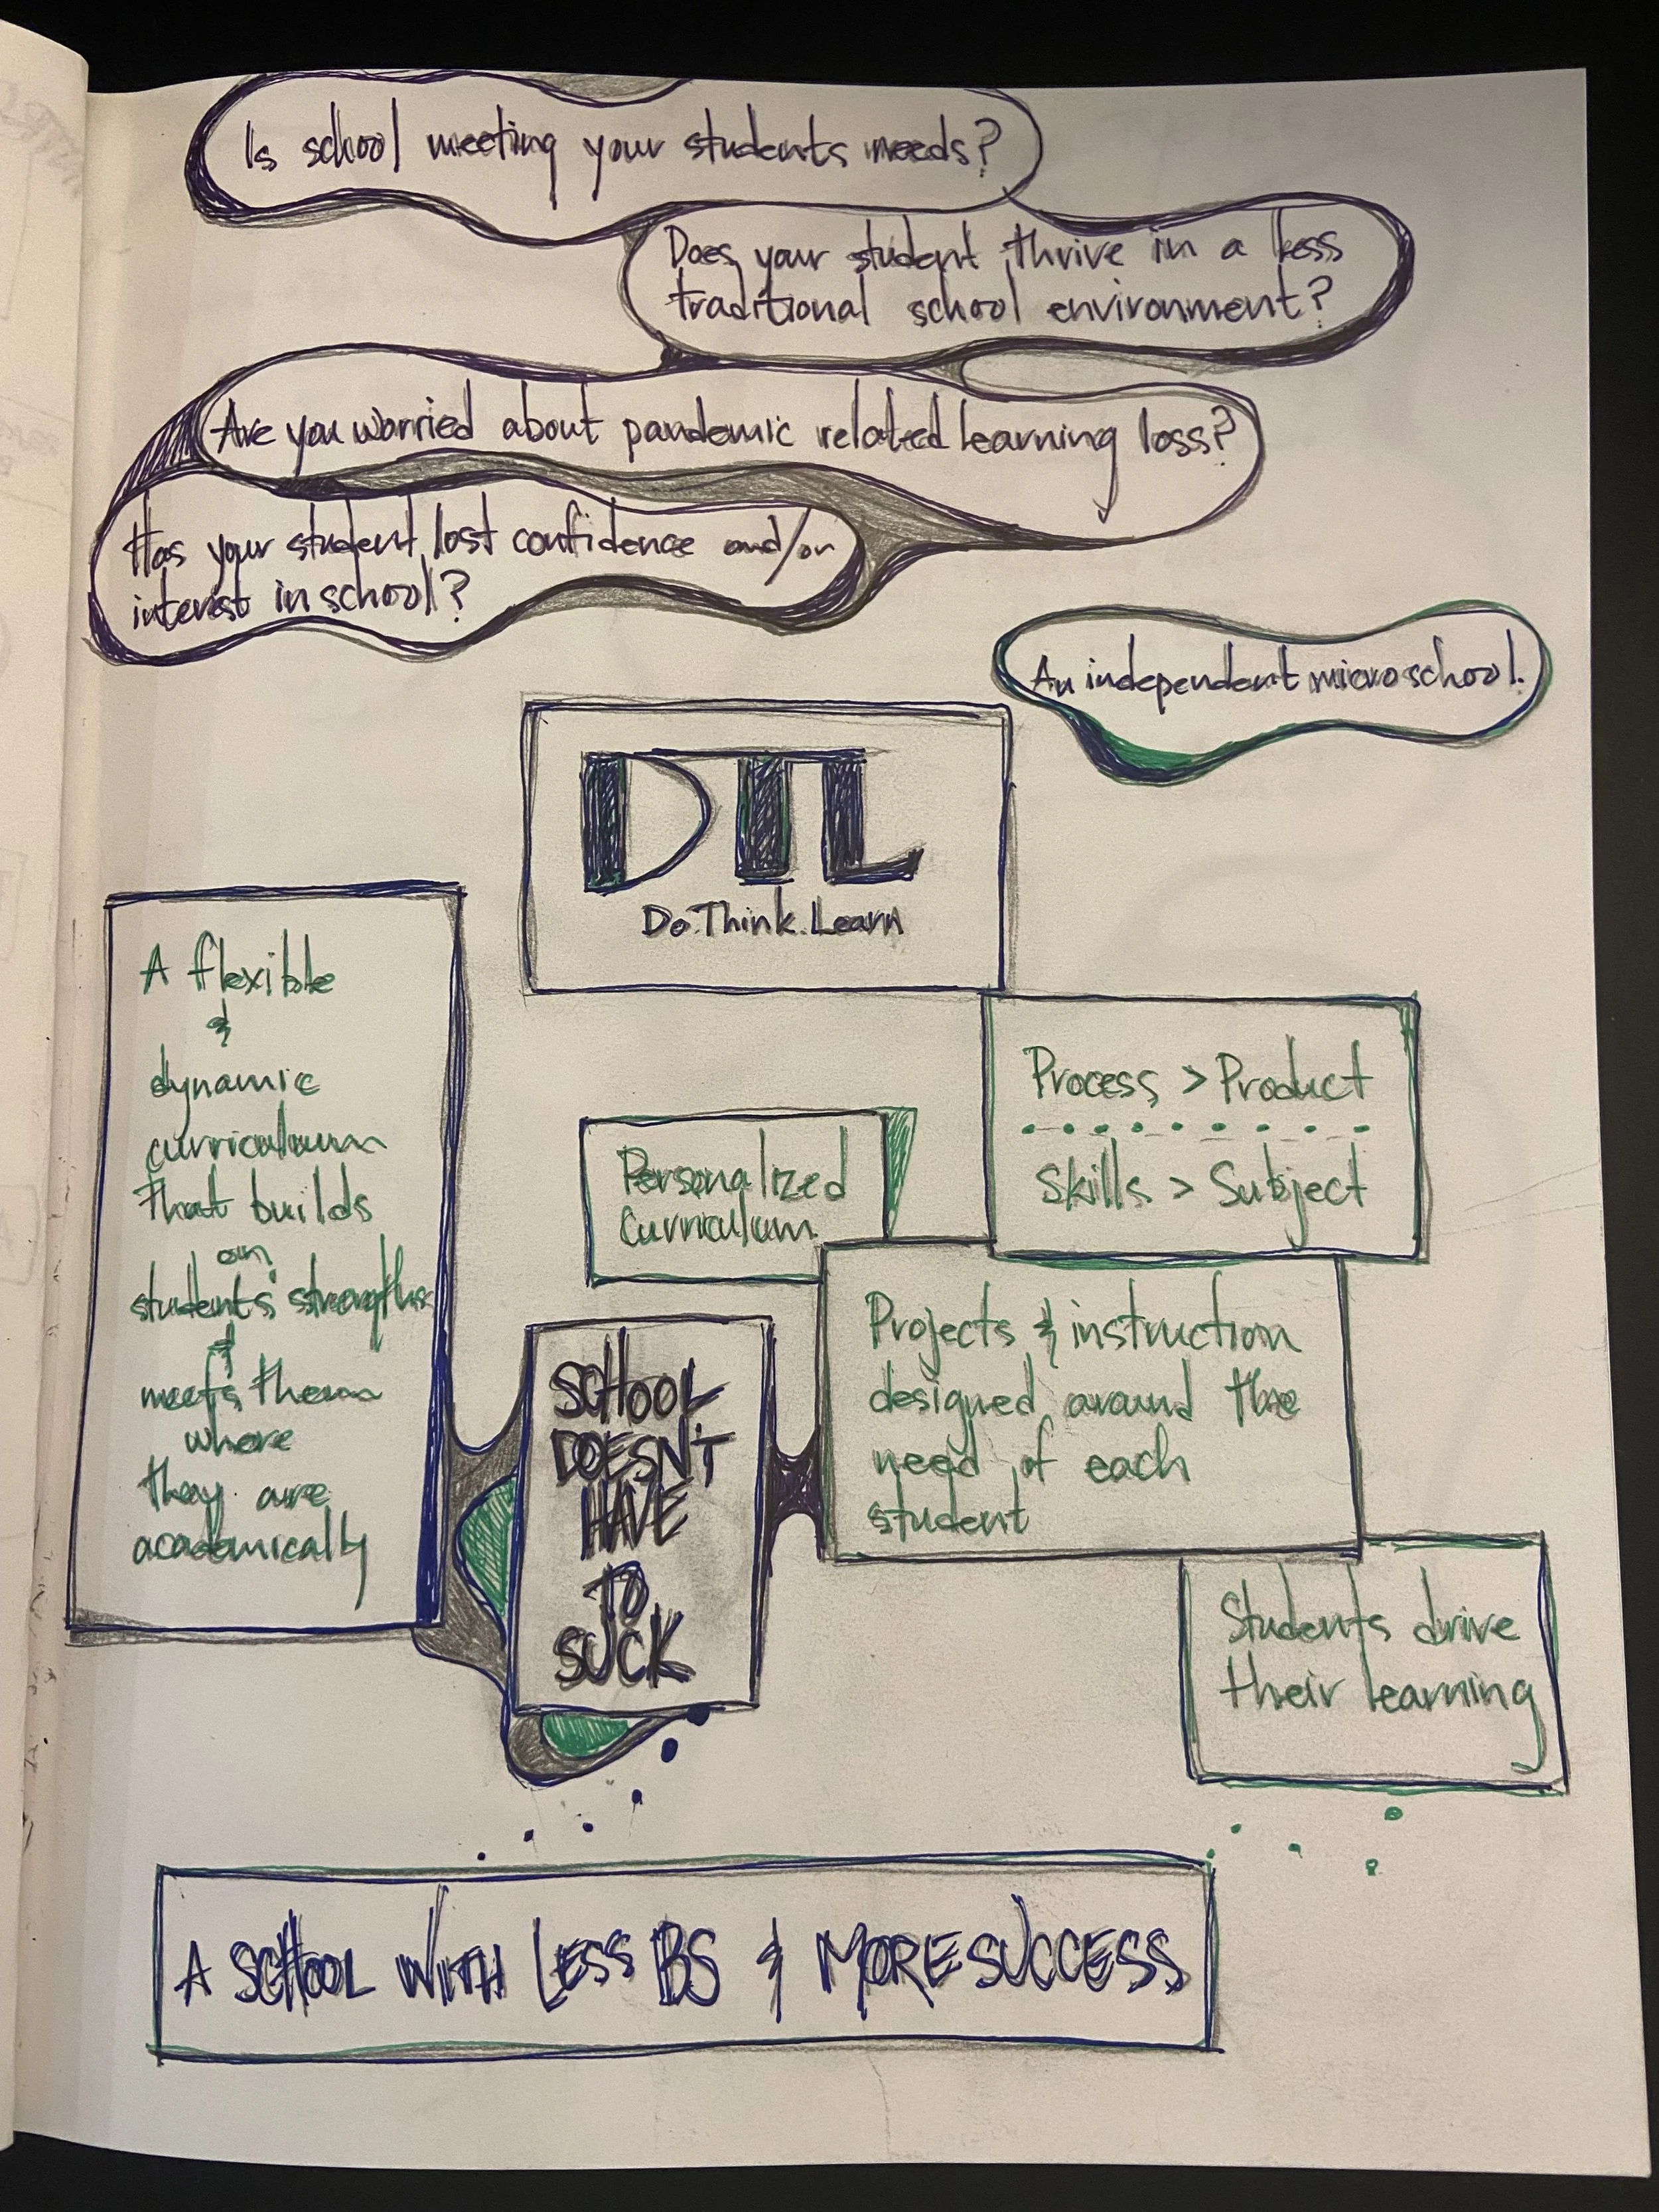 Is school meeting your students needs?
Does your student thrive in a less
traditional school environment?
Are you worried about pandemic related learning loss?
Has your student lost confidence and/or
interest in school?
An independent microschool.
DTL
Do.Think.Learn
A flexible
&
dynamic
curriculum
that builds
on
students' strengths
&
meets them
where
they are
academically
Process > Product
Skills > Subject
Personalized
Curriculum
Projects & instruction
designed around the
need of each
student
SCHOOL
DOESN'T
HAVE
TO
SUCK
Students drive
their learning
A SCHOOL WITH LESS BS & MORE SUCCESS